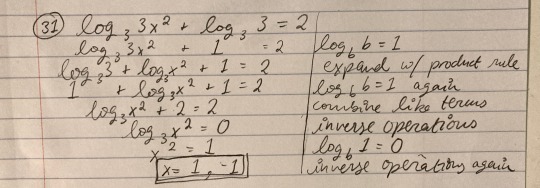 31 log₃ 3x² + log₃ 3 = 2
log₃ 3x² + 1 = 2 log_b b = 1
log₃ 3 + log₃ x² + 1 = 2 expand w/ product rule
1 + log₃ x² + 1 = 2 log_b b = 1 again
log₃ x² + 2 = 2 combine like terms
log₃ x² = 0 inverse operations
x² = 1 log_b 1 = 0
x = 1, -1 inverse operations again